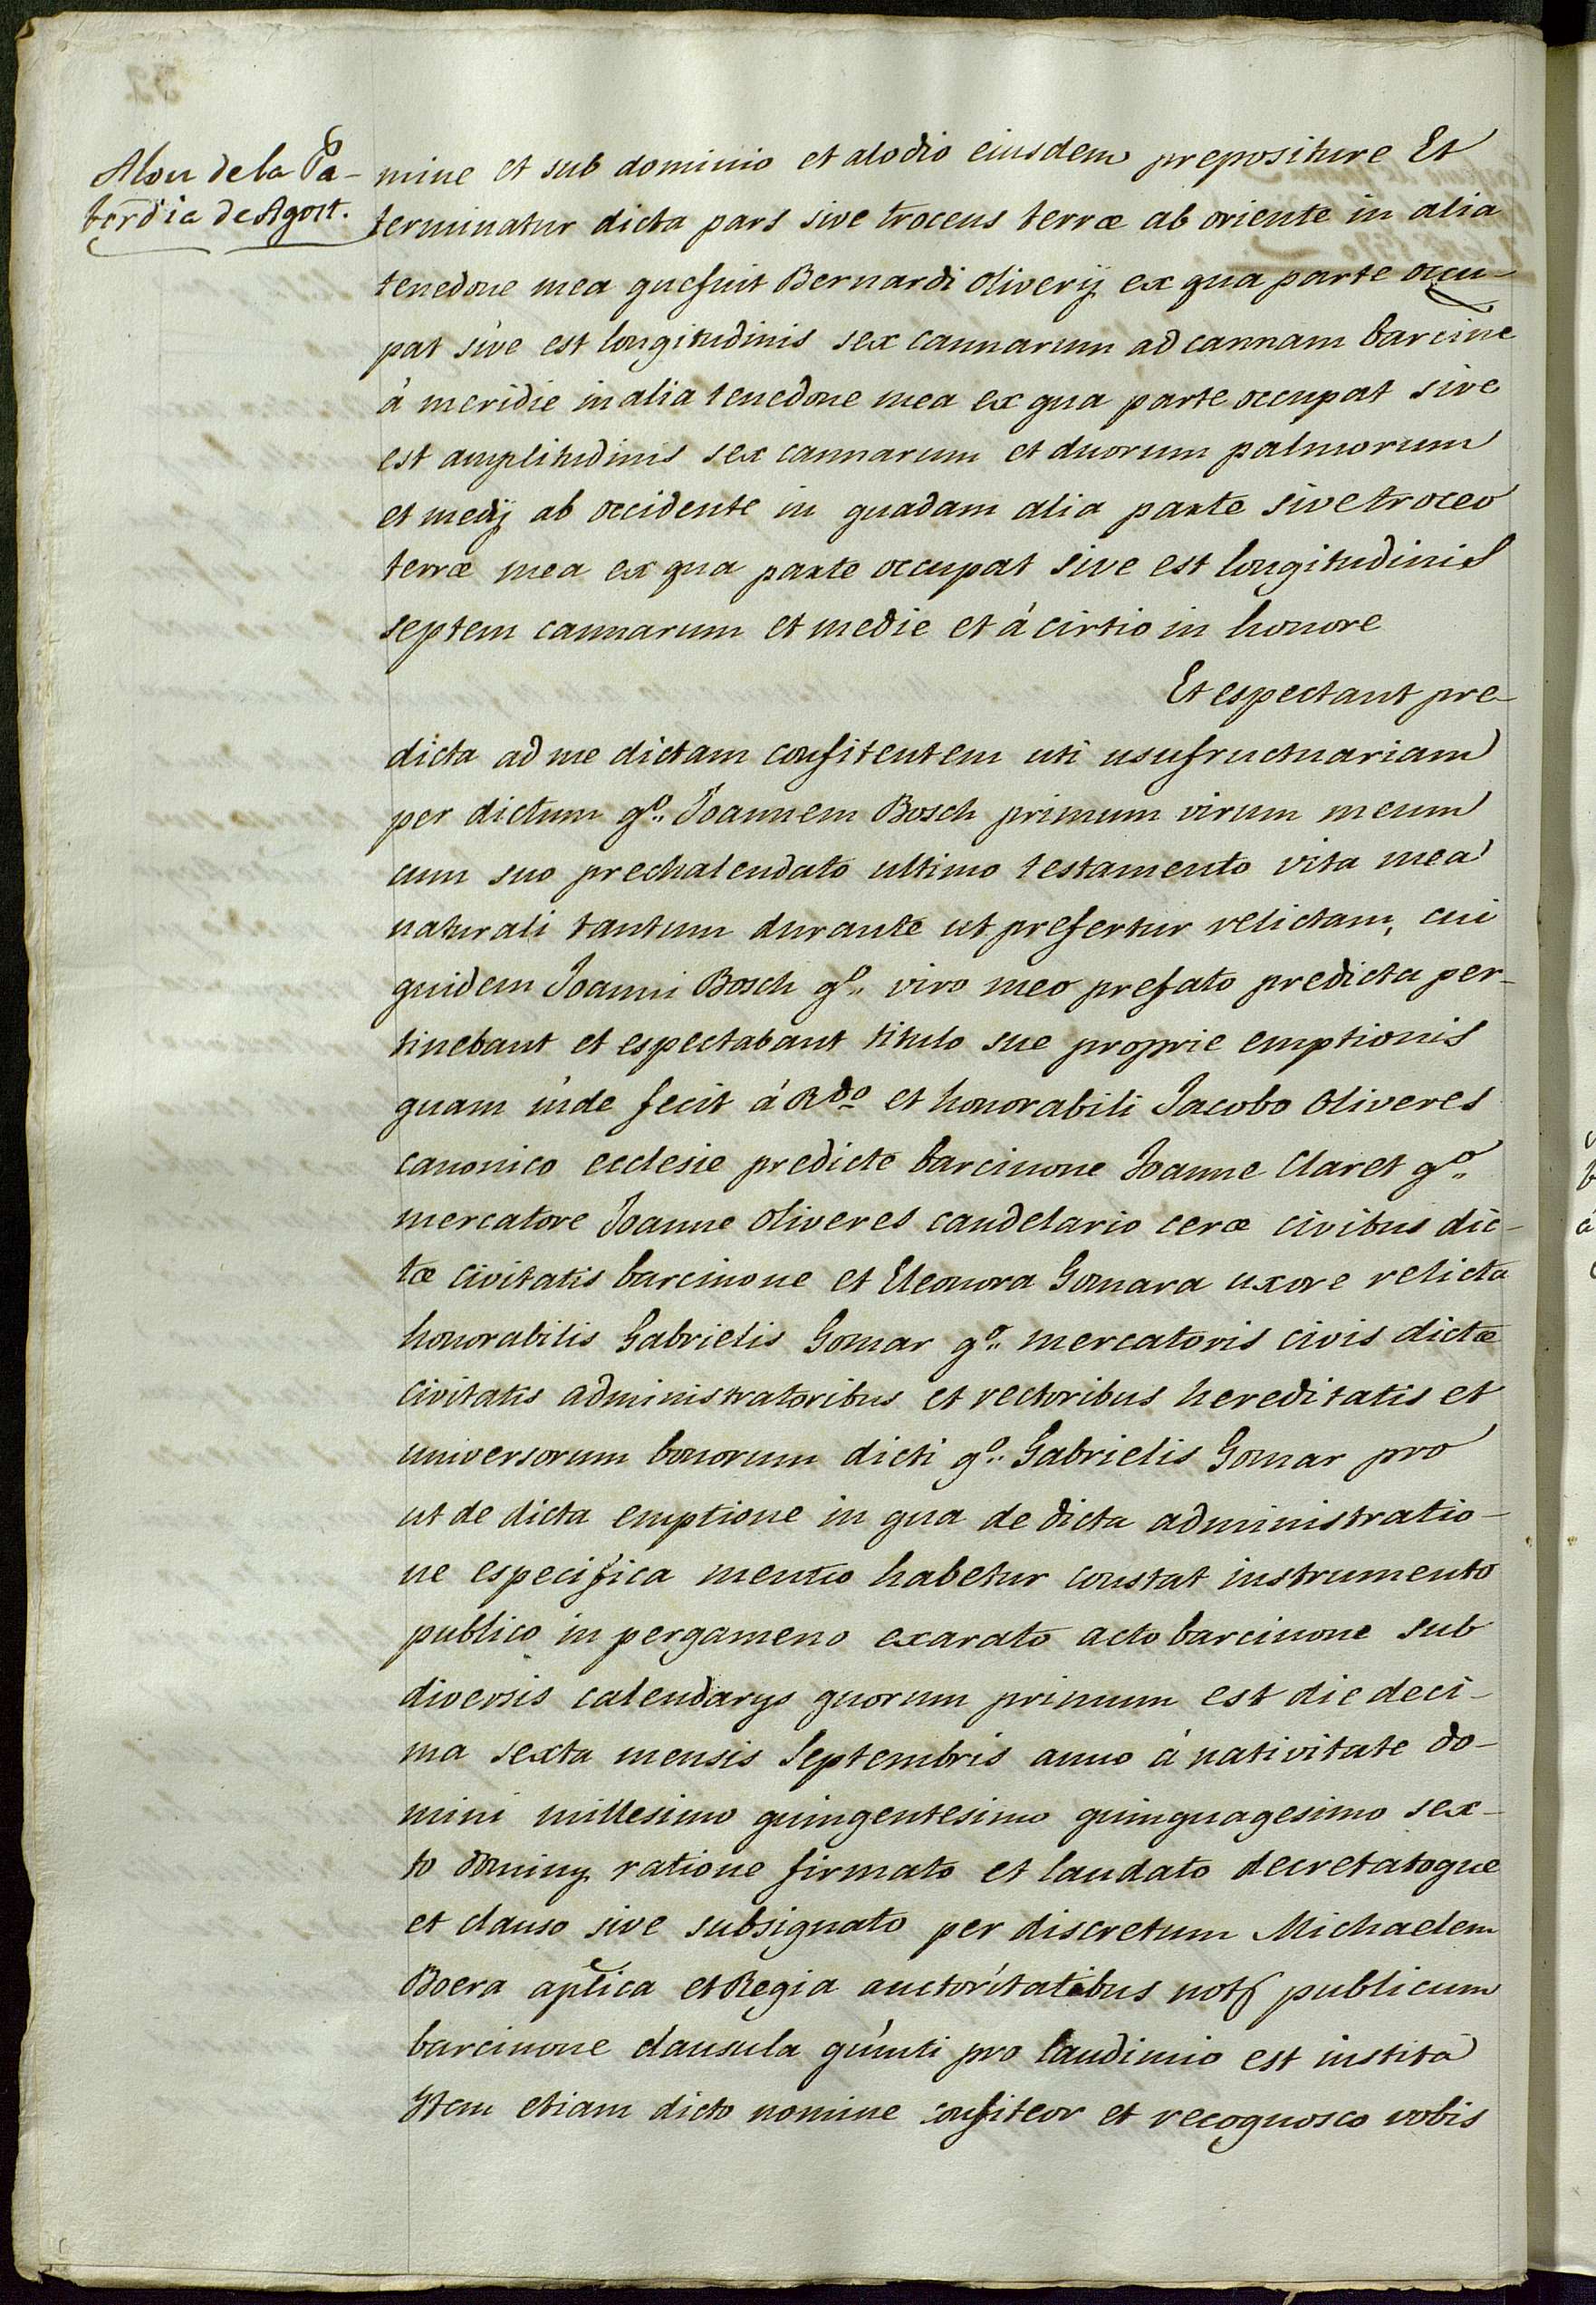 Alou de la Pa-
bordia de Agost.
mine et sub dominio et alodio eiusdem prepositure Et
terminatur dicta pars sive troceus terræ ab oriente in alia
tenedone mea quefuit Bernardi Oliverij ex qua parte occu-
pat sive est longitudinis sex cannarum ad cannam barcine
á meridie in alia tenedone mea ex qua parte occupat sive
est amplitudinis sex cannarum et duorum palmorum
et medij ab occidente in quadam alia parte sive troceo
terræ mea ex qua parte occupat sive est longitudinis
septem cannarum et medie et á cirtio in honore
Et espectant pre-
dicta ad me dictam confitentem uti usufructuariam
per dictum qº. Joannem Bosch primum virum meum
cum suo prechalendato ultimo testamento vita mea
naturali tantum durante ut prefertur relictam, cui
quidem Joanni Bosch qº. viro meo prefato predicta per-
tinebant et espectabant titulo sue proprie emptionis
quam inde fecit á Rdo et honorabili Jacobo Oliveres
canonico ecclesie predicte barcinone Joanne Claret qº.
mercatore Joanne Oliveres candelario ceræ civibus dic-
tæ civitatis barcinone et Eleonora Gomara uxore relicta
honorabilis Gabrielis Gomar qº. mercatoris civis dictæ
civitatis administratoribus et rectoribus hereditatis et
universorum bonorum dicti qº. Gabrielis Gomar pro
ut de dicta emptione in qua de dicta administratio-
ne especifica mentio habetur constat instrumento
publico in pergameno exarato acto barcinone sub
diversis calendarys quorum primum est die deci-
ma sexta mensis Septembris anno á nativitate do-
mini millesimo quingentesimo quinquagesimo sex-
to dominy ratione firmato et laudato decretatoque
et clauso sive subsignato per discretum Michaelem
Boera aplica et Regia auctoritatibus not publicum
barcinone clausula quinti pro laudimio est instita
Item etiam dicto nomine confiteor et recognosco vobis